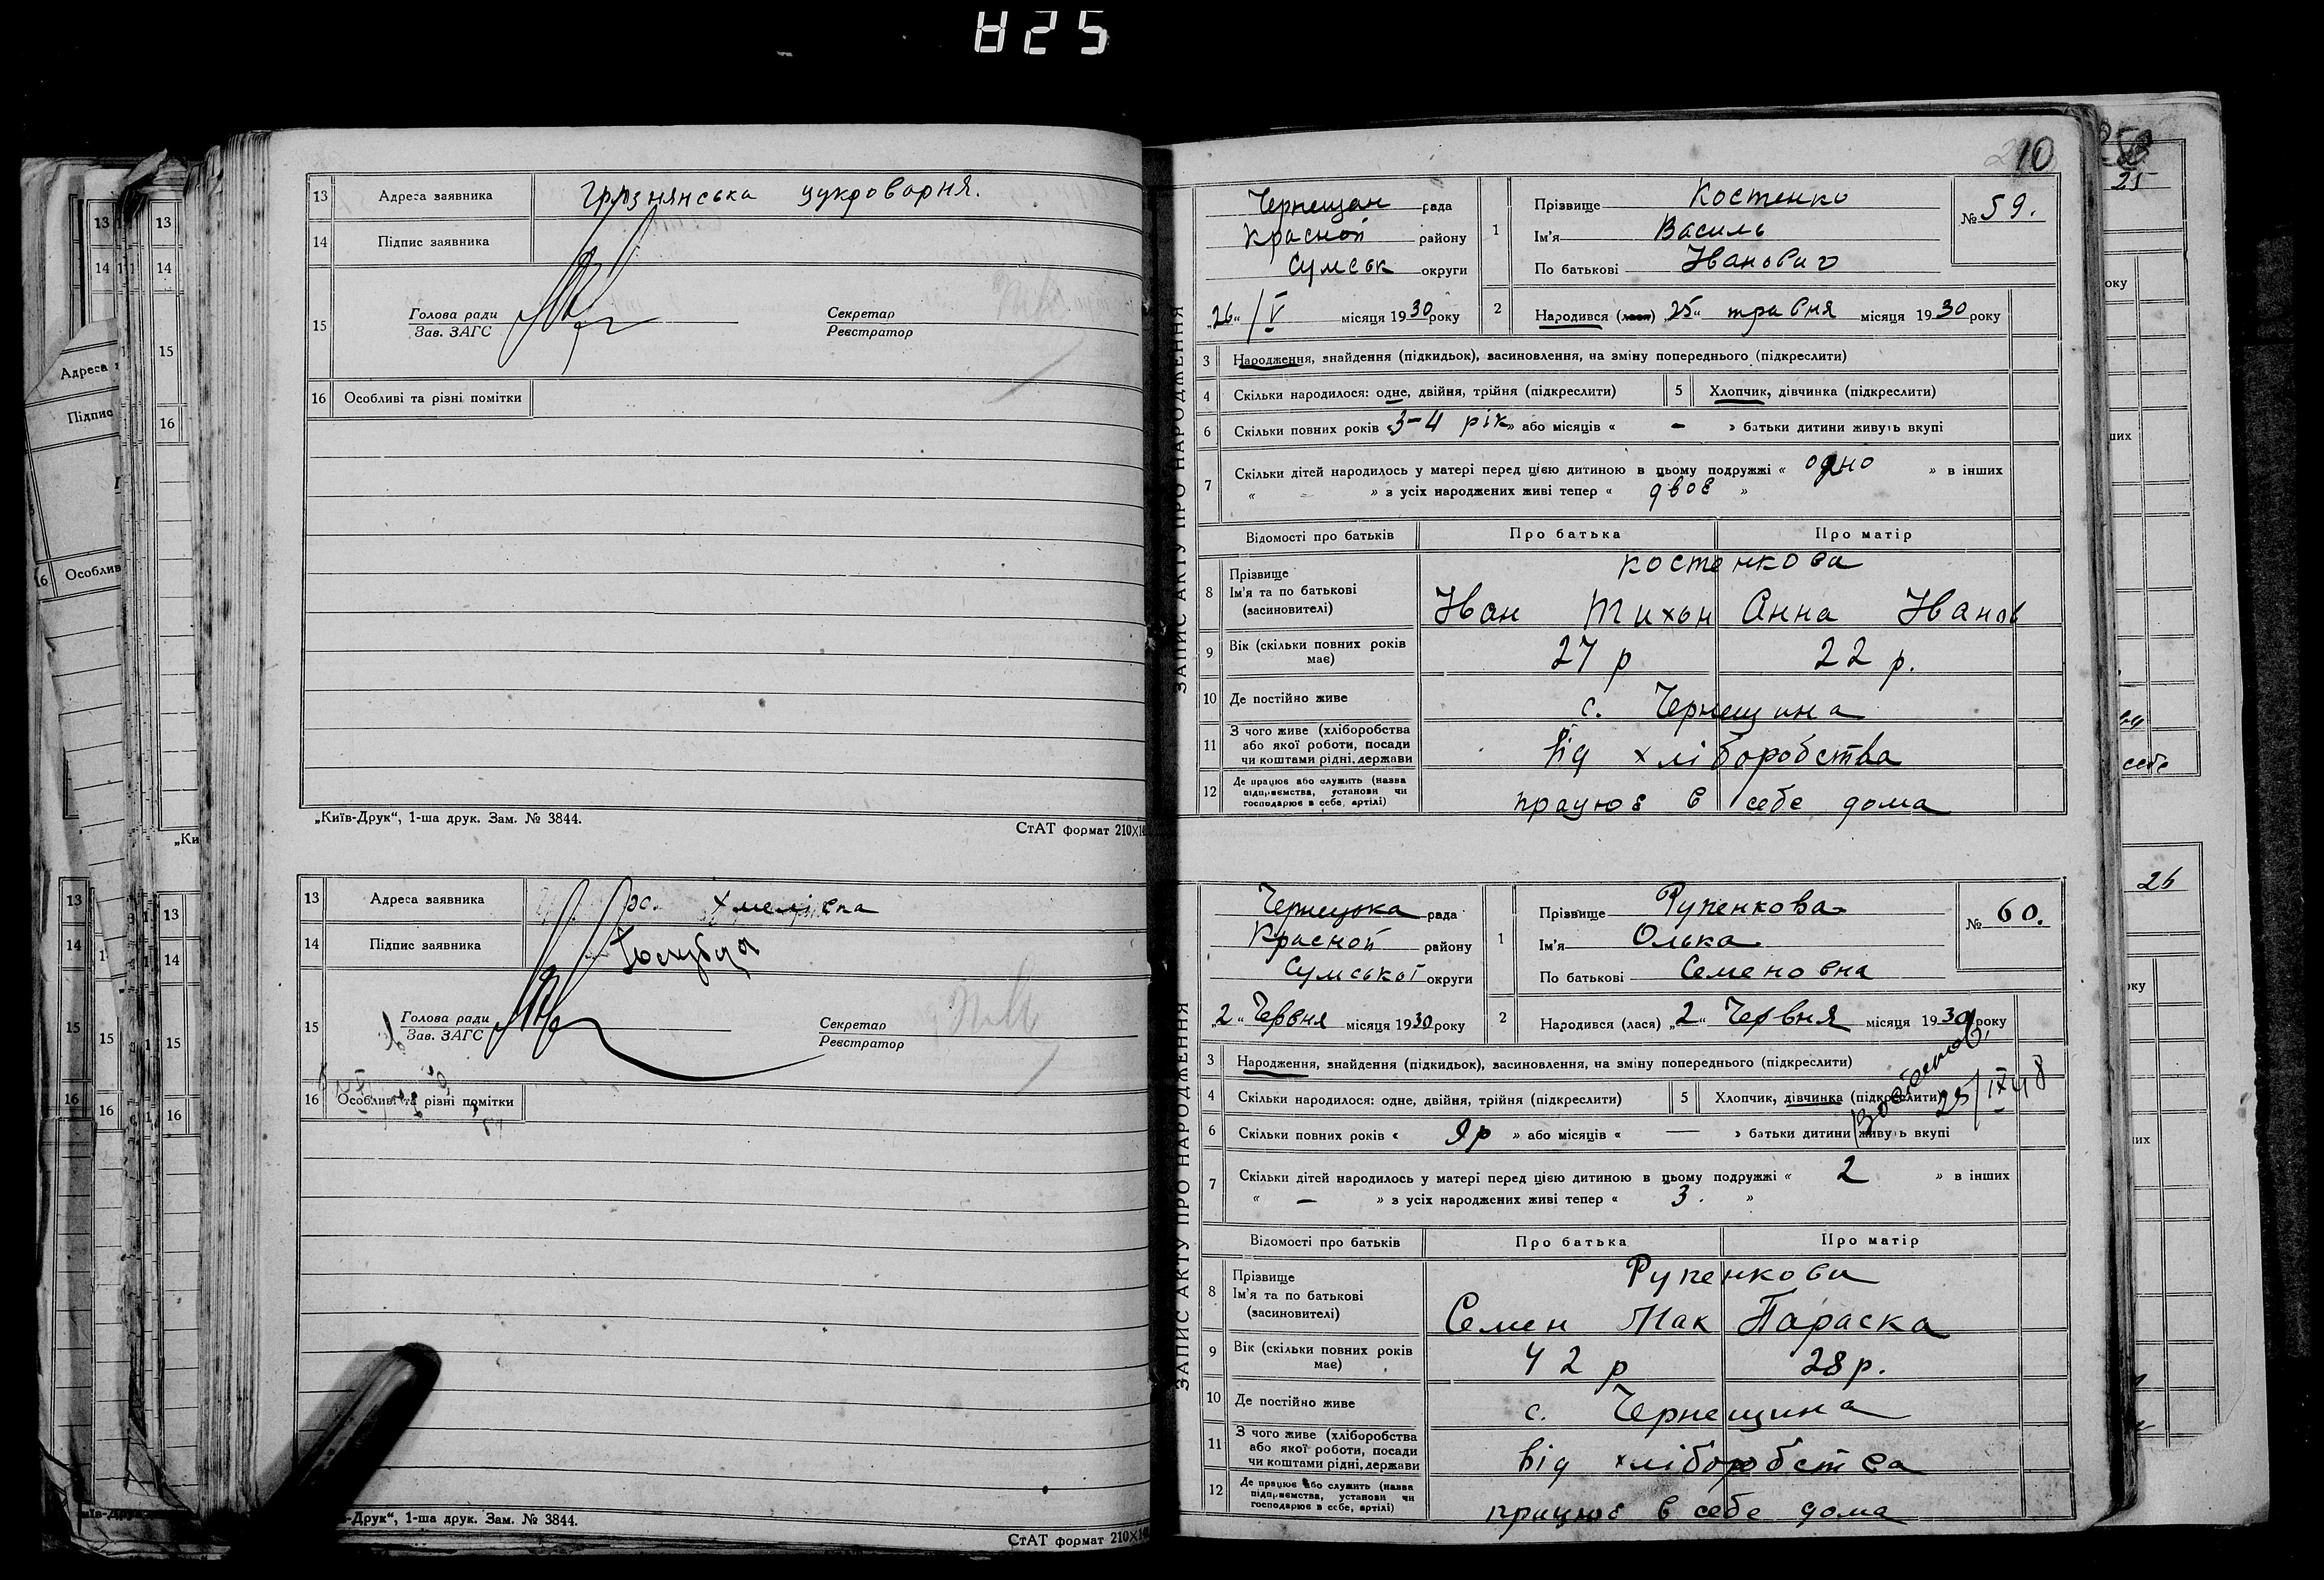 825
13 Адреса заявника Грязнянська цукроварня.
14 Підпис заявника
15 Голова ради
Зав. ЗАГС
Секретар
Реєстратор
16 Особливі та різні помітки
„Київ-Друк“, 1-ша друк. Зам. № 3844.
СтАТ формат 210×14
13 Адреса заявника с. Хмелівка
14 Підпис заявника
15 Голова ради
Зав. ЗАГС
Секретар
Реєстратор
16 Особливі та різні помітки
-Друк“, 1-ша друк. Зам. № 3844.
СтАТ формат 210×14
10
ЗАПИС АКТУ ПРО НАРОДЖЕННЯ
Чернещан рада
Красноп району
Сумськ округи
„26“ /V місяця 1930 року
1 Прізвище Костенко
Ім'я Василь
По батькові Іванович
№ 59.
2 Народився (лася) „25“ травня місяця 1930 року
3 Народження, знайдення (підкидьок), засиновлення, на зміну попереднього (підкреслити)
4 Скільки народилося: одне, двійня, трійня (підкреслити) 5 Хлопчик, дівчинка (підкреслити)
6 Скільки повних років « 3-4 рік » або місяців « — » батьки дитини живуть вкупі
7 Скільки дітей народилось у матері перед цією дитиною в цьому подружжі « одно » в інших
« - » з усіх народжених живі тепер « двоє »
Відомості про батьків Про батька Про матір
8 Прізвище
Ім'я та по батькові
(засиновителі)
Костенкова
Іван Тихон Анна Іванов
9 Вік (скільки повних років має) 27 р 22 р.
10 Де постійно живе с. Чернещина
11 З чого живе (хліборобства
або якої роботи, посади
чи коштами рідні, держави
від хліборобства
12 Де працює або служить (назва
підприємства, установи чи
господарює в себе, артілі)
працює в себе дома
ЗАПИС АКТУ ПРО НАРОДЖЕННЯ
Чернецька рада
Красноп району
Сумської округи
„2“ Червня місяця 1930 року
1 Прізвище Рупенкова
Ім'я Олька
По батькові Семеновна
№ 60.
2 Народився (лася) „2“ Червня місяця 1930 року
3 Народження, знайдення (підкидьок), засиновлення, на зміну попереднього (підкреслити)
4 Скільки народилося: одне, двійня, трійня (підкреслити) 5 Хлопчик, дівчинка (підкреслити)
25/IX 48
6 Скільки повних років « 9р » або місяців « — » батьки дитини живуть вкупі
7 Скільки дітей народилось у матері перед цією дитиною в цьому подружжі « 2 » в інших
« — » з усіх народжених живі тепер « 3. »
Відомості про батьків Про батька Про матір
8 Прізвище
Ім'я та по батькові
(засиновителі)
Рупенкови
Семен Мак Параска
9 Вік (скільки повних років має) 42 р 28р.
10 Де постійно живе с. Чернещина
11 З чого живе (хліборобства
або якої роботи, посади
чи коштами рідні, держави
від хліборобства
12 Де працює або служить (назва
підприємства, установи чи
господарює в себе, артілі)
працює в себе дома
25
26